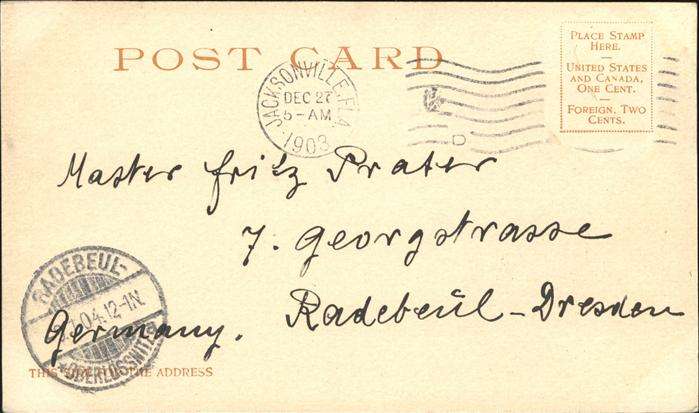 POST CARD
PLACE STAMP
HERE.
UNITED STATES
AND CANADA,
ONE CENT.
FOREIGN, TWO
CENTS.
JACKSONVILLE, FLA.
DEC 27
5-AM
1903
D
Master Fritz Prater
7. Georgstrasse
Radebeul-Dresden
Germany.
RADEBEUL-
04.12-1N.
OBERLÖSSNITZ
THIS SIDE FOR THE ADDRESS